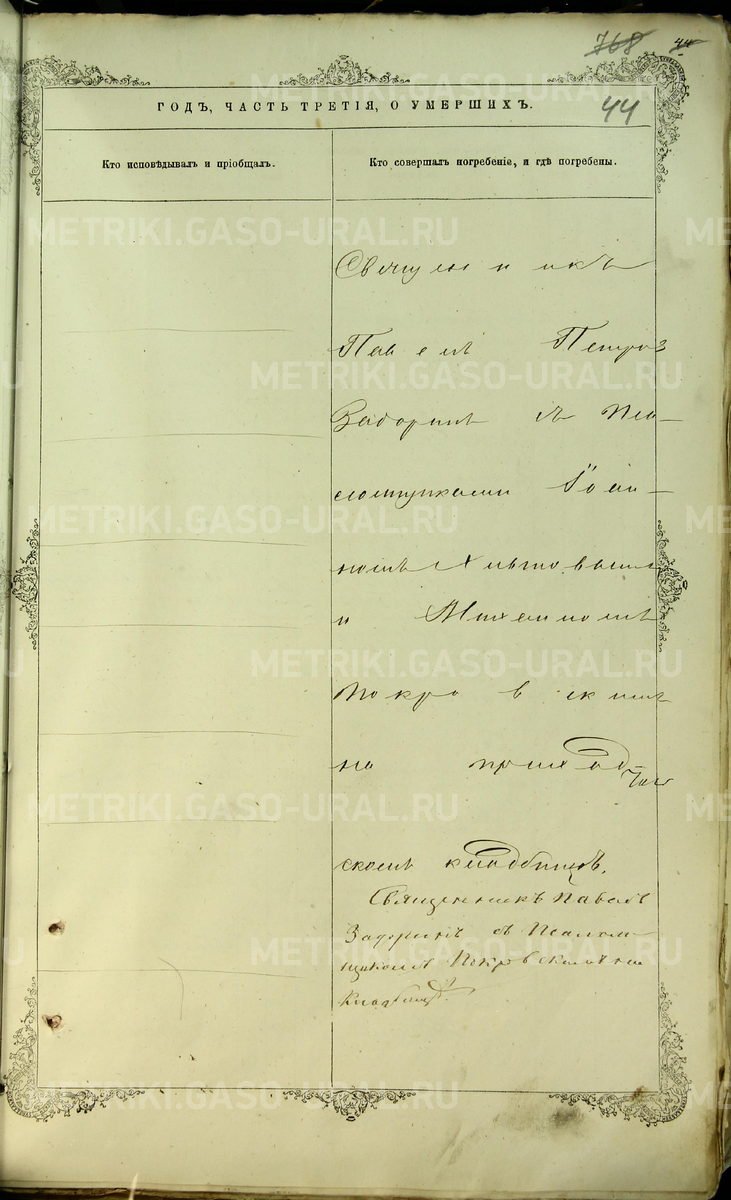 768 44
44
ГОДЪ, ЧАСТЬ ТРЕТІЯ, О УМЕРШИХЪ.
Кто исповѣдывалъ и пріобщалъ.
Кто совершалъ погребеніе, и гдѣ погребены.
METRIKI.GASO-URAL.RU
Священникъ
Павелъ Петровъ
Задоринъ съ Пса-
ломщиками Іоан-
номъ Хлѣтовымъ
и Михаиломъ
Покровскимъ
на приход-
скомъ кладбищѣ.
Священникъ Павелъ
Задоринъ съ Псалом-
щикомъ Покровскимъ на
кладбищѣ